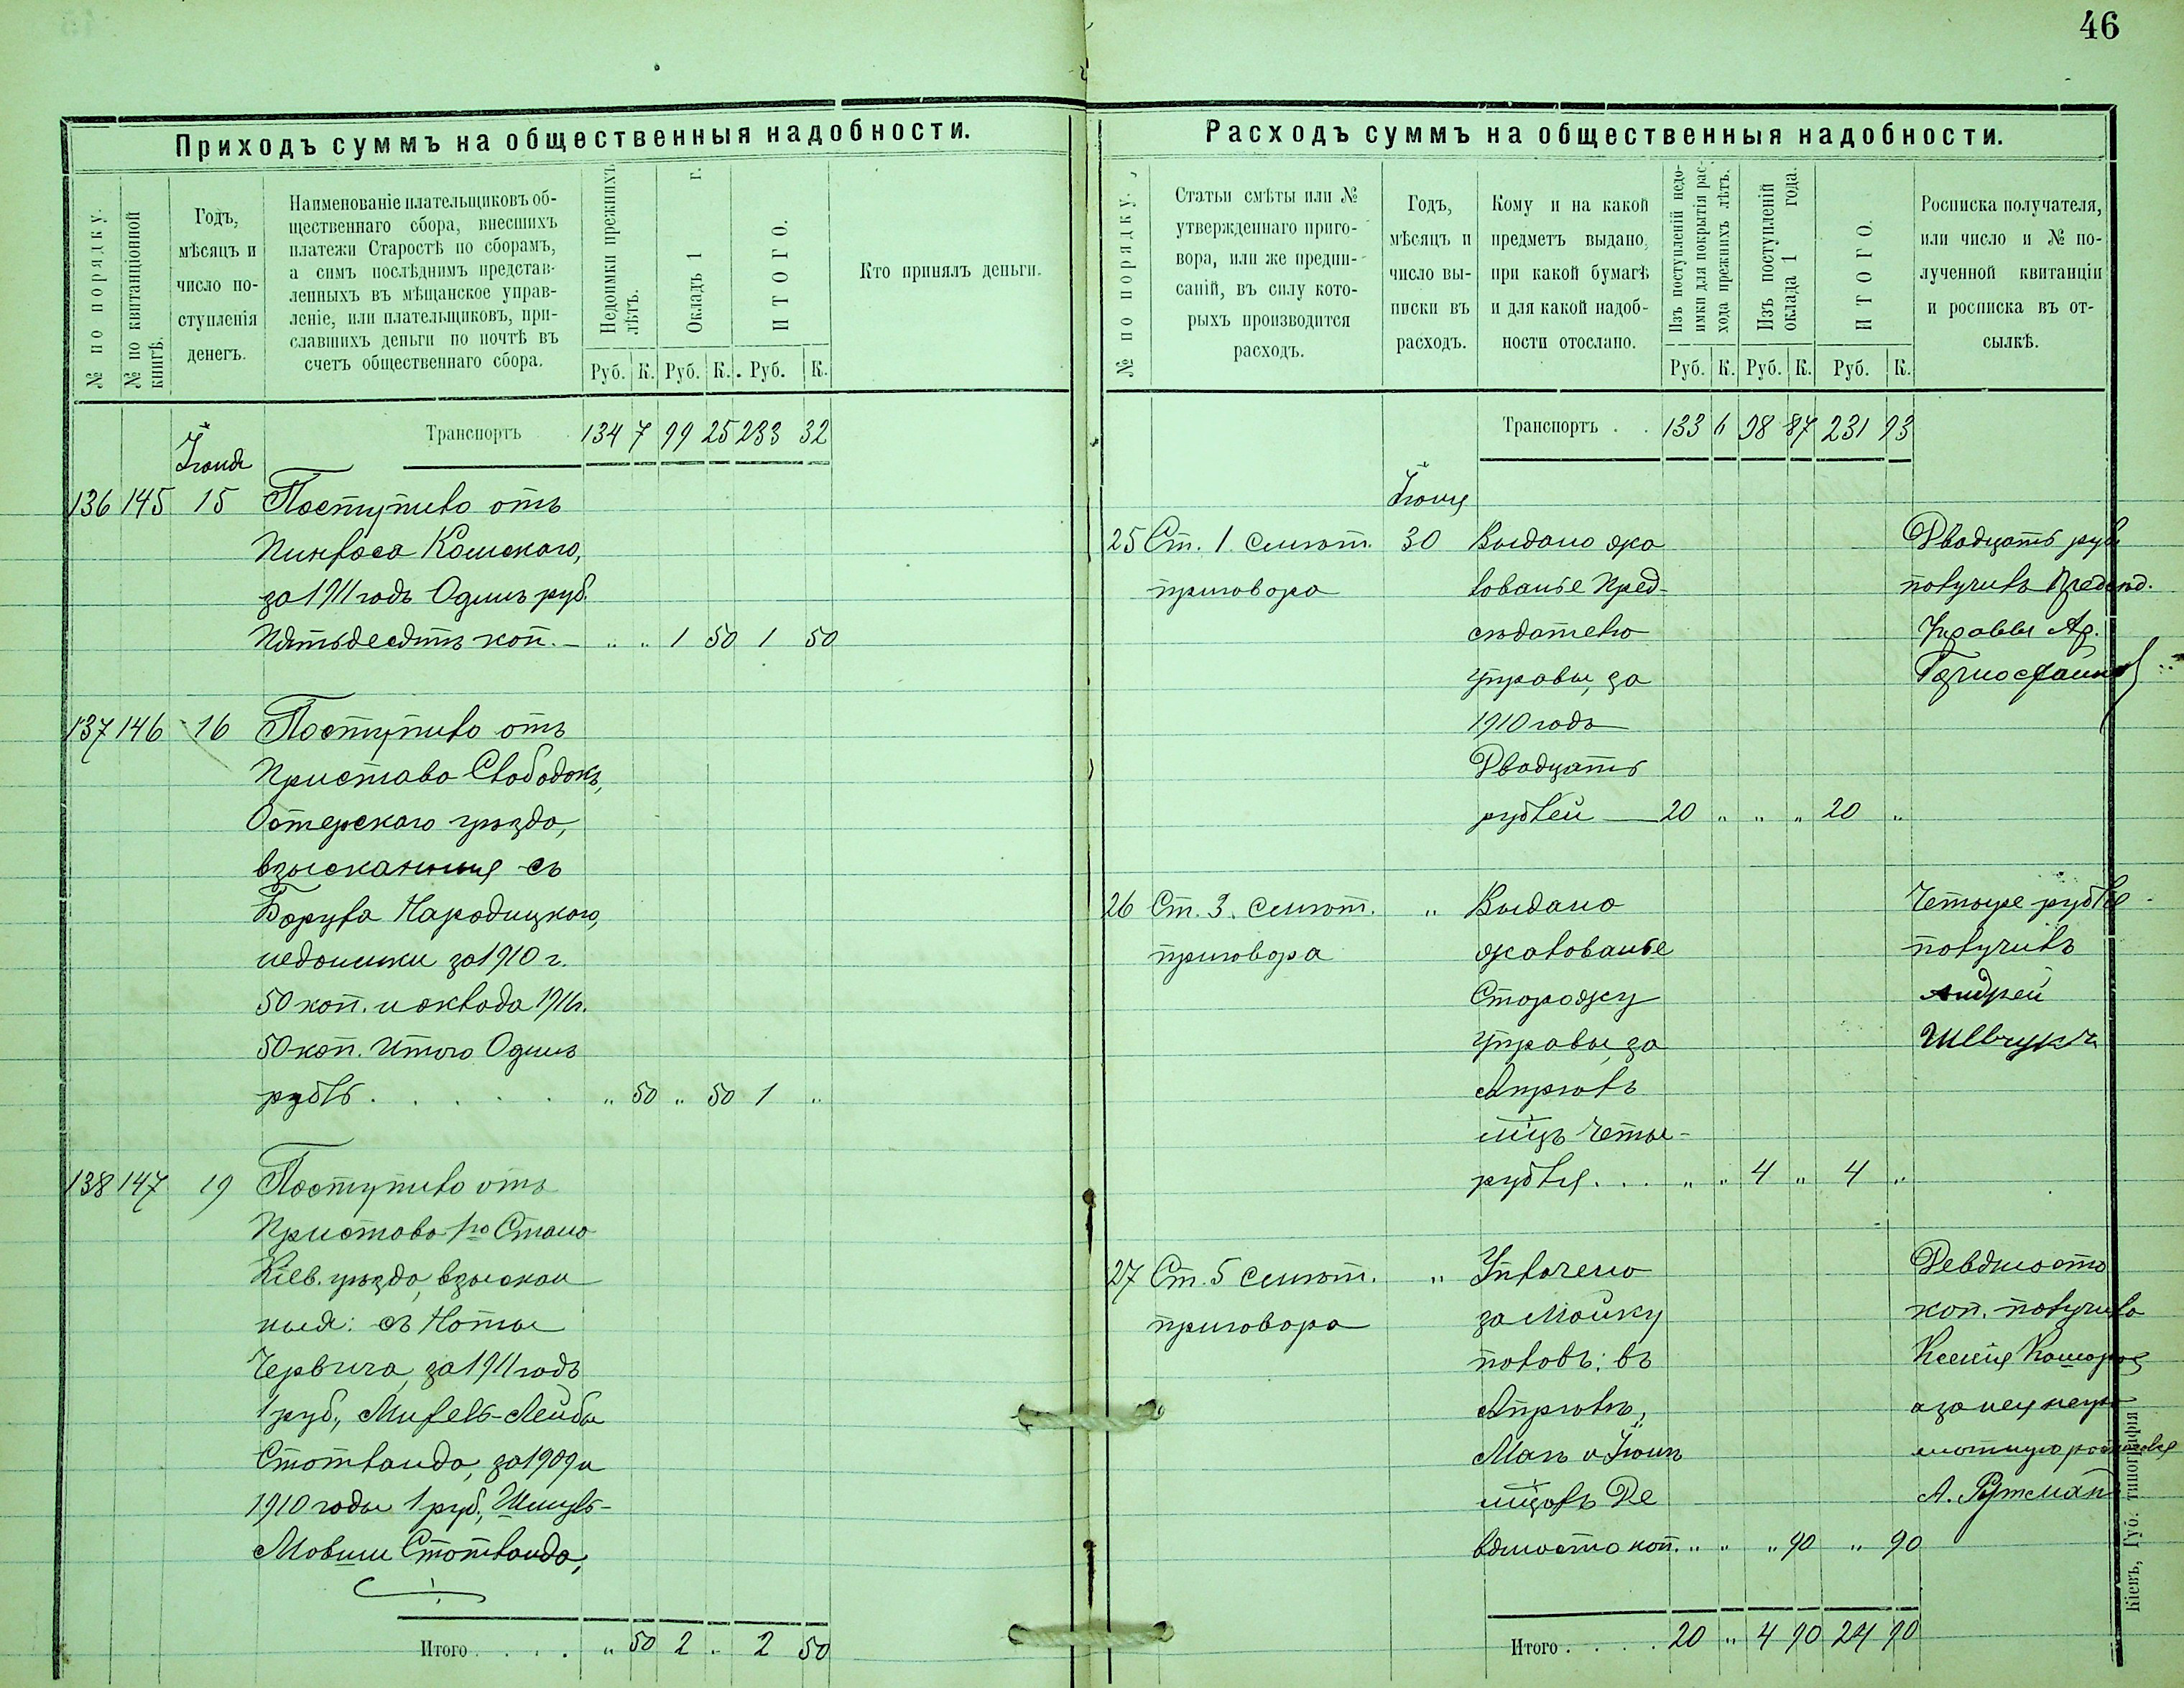 46
Приходъ суммъ на общественныя надобности.
№ по порядку.
№ по квитанціонной книгѣ.
Годъ,
мѣсяцъ и
число по-
ступленія
денегъ.
Наименованіе плательщиковъ об-
щественнаго сбора, внесшихъ
платежи Старостѣ по сборамъ,
а симъ послѣднимъ представ-
ленныхъ въ мѣщанское управ-
леніе, или плательщиковъ, при-
славшихъ деньги по почтѣ въ
счетъ общественнаго сбора.
Недоимки прежнихъ
лѣтъ.
Окладъ 1 г.
ИТОГО.
Кто принялъ деньги.
Руб. К. Руб. К. Руб. К.
Транспортъ 134 7 99 25 233 32
Іюня
136 145 15 Поступило отъ
Пинхоса Комскаго,
за 1911 годъ Одинъ руб.
Пятьдесятъ коп. — " " 1 50 1 50
137 146 16 Поступило отъ
Пристава Слободокъ,
Остерскаго уѣзда,
взысканныя съ
Боруха Народицкаго,
недоимки за 1910 г.
50 коп. и оклада 1911 г.
50 коп. Итого Одинъ
рубль . . . . . " 50 " 50 1 "
138 147 19 Поступило отъ
Пристава 1го Стана
Кіев. уѣзда, взыскан
ныя: съ Ноты
Червича, за 1911 годъ
1 руб., Михель-Лейбы
Стотланда, за 1909 и
1910 годы 1 руб., Шмуль-
Мовши Стотланда,
Итого . . . . " 50 2 " 2 50
Расходъ суммъ на общественныя надобности.
№ по порядку.
Статьи смѣты или №
утвержденнаго приго-
вора, или же предпи-
саній, въ силу кото-
рыхъ производится
расходъ.
Годъ,
мѣсяцъ и
число вы-
писки въ
расходъ.
Кому и на какой
предметъ выдано,
при какой бумагѣ
и для какой надоб-
ности отослано.
Изъ поступленій недо-
имки для покрытія рас-
хода прежнихъ лѣтъ.
Изъ поступленій
оклада 1 года.
ИТОГО.
Росписка получателя,
или число и № по-
лученной квитанціи
и росписка въ от-
сылкѣ.
Руб. К. Руб. К. Руб. К.
Транспортъ . . 133 6 98 87 231 93
Іюня
25 Ст. 1. смѣт. 30 Выдано жа
приговора
лованье Пред-
сѣдателю
управы, за
1910 годъ
Двадцать
рублей — 20 " " " 20 "
Двадцать руб.
получилъ Предсѣд.
Управы Ар.
26 Ст. 3. смѣт. " Выдано
приговора
жалованье
Сторожу
управы, за
Апрѣль
мцъ Четы-
рубля . . . " " 4 " 4 "
Четыре рубля
получилъ
Андрей
Шевчукъ
27 Ст. 5 смѣт. " Уплачено
приговора
за Мойку
половъ: въ
Апрѣлѣ,
Маѣ и Іюнѣ
мцахъ Де
вяносто коп. " " " 90 " 90
Девяносто
коп. получила
Ксенія
а за нея негра
мотную
А. Рутман
Итого . . . . 20 " 4 90 24 90
Кіевъ, Губ. типографія